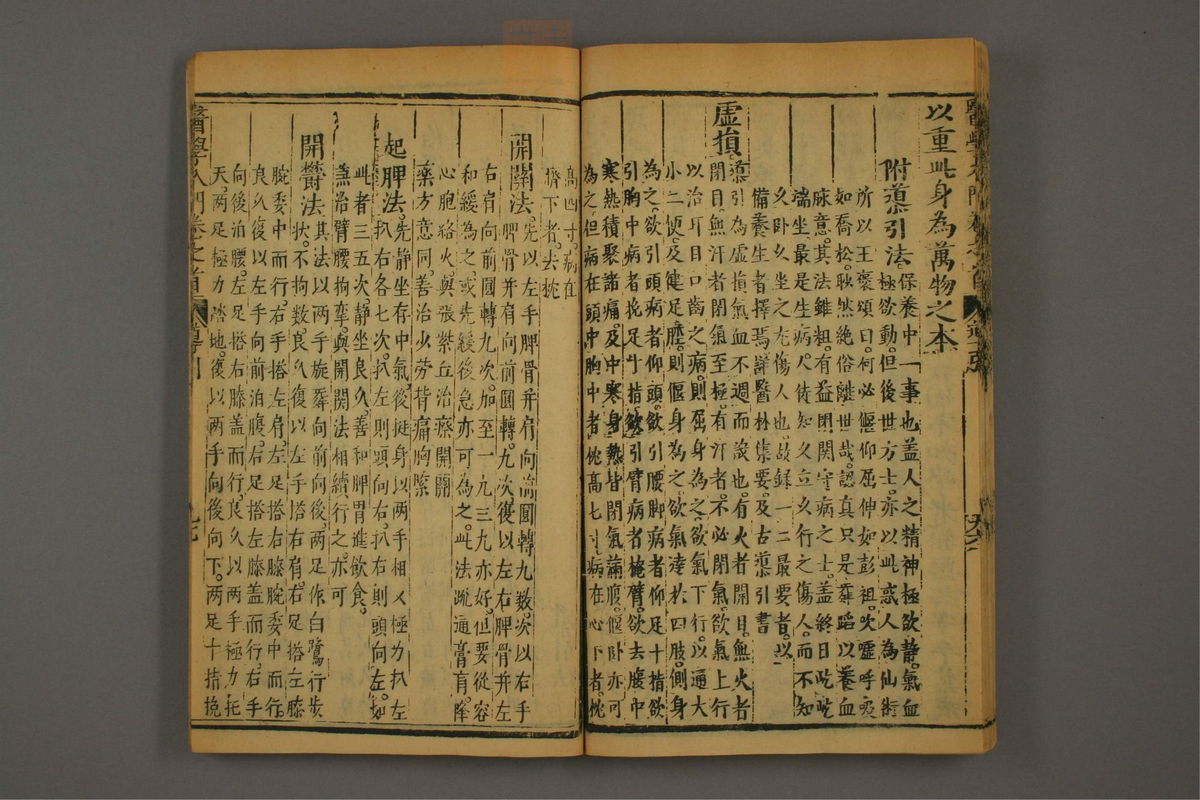 以重此身為萬物之本
附導引法保養中一事也盖人之精神極欲静氣血
極欲動但後世方士亦以此惑人為仙術
所以王褒頌曰何必偃仰屈伸如彭祖吹噓呼吸
如喬松眇然絶俗離世哉認真只是舞蹈以養血
脉意其法雖粗有益閉關守病之士盖終日屹屹
端坐最是生病人徒知久立久行之傷人而不知
久卧久坐之尤傷人也故録一二最要者以
備養生者擇焉醫林集要及古導引書
虛損導引為虛損氣血不週而設也有火者開目無火者
閉目無汗者閉氣至極有汗者不必閉氣欲氣上行
以治耳目口齒之病則屈身為之欲氣下行以通大
小二便及健足脛則偃身為之欲氣達於四肢側身
為之欲引頭病者仰頭欲引腰脚病者仰足十指欲
引胸中病者挽足十指欲引臂病者掩臂欲去腹中
寒熱積聚諸痛及中寒身熱皆閉氣滿腹偃卧亦可
為之但病在頭中胸中者枕高七寸病在心下者枕
高四寸病在
臍下者去枕
開關法先以左手脾骨并肩向前圓轉九數次以右手
脾骨并肩向前圓轉九次後以左右脾骨并左
右肩向前圓轉九次加至一九三九亦好但要從容
和緩為之或先緩後急亦可為之此法疏通膏肓降
心胞絡火與張紫丘治瘵開關
藥方意同善治火勞背痛胸緊
起脾法先静坐存中氣後挺身以两手相义極力扒左
扒右各七次扒左則頭向右扒右則頭向左如
此者三五次静坐良久善和脾胃進飲食
兼治臂腰拘挛與開關法相續行之亦可
開欝法其法以两手旋舞向前向後两足作白鷺行步
状不拘數良久復以左手搭右肩右足搭左膝
腕委中而行右手搭左肩左足搭右膝腕委中而行
良久復以左手向前泊腹右足搭左膝盖而行右手
向後泊腰左足搭右膝盖而行良久以两手極力托
天两足極力踏地復以两手向後向下两足十指挽
醫學入門卷之首
導引
九七